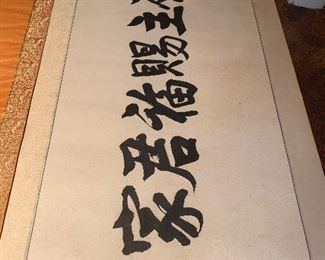 主賜福君家